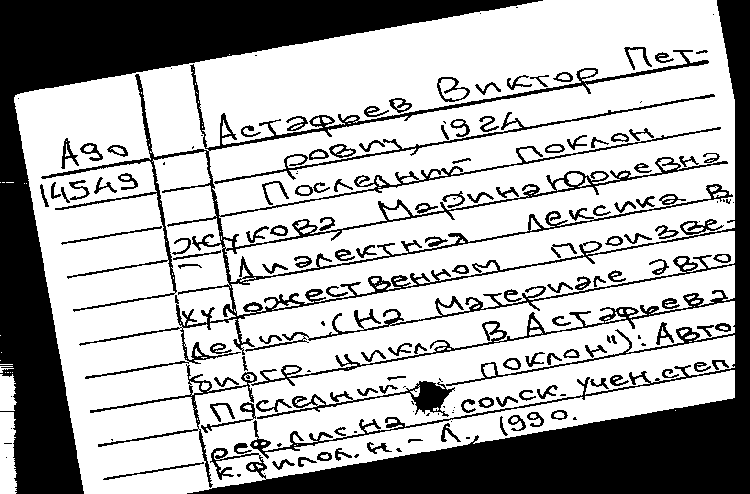 Астафьев, Виктор Пет-
А90 рович, 1924
14549 Последний поклон.
Жукова, Марина Юрьевна
- Диалектная лексика в
художественном произве-
дении: (На материале авто
биогр. цикла В. Астафьева
"Последний поклон"): Авто
реф. дис. на соиск. учен. степ.
к. филол. н. - Л., 1990.